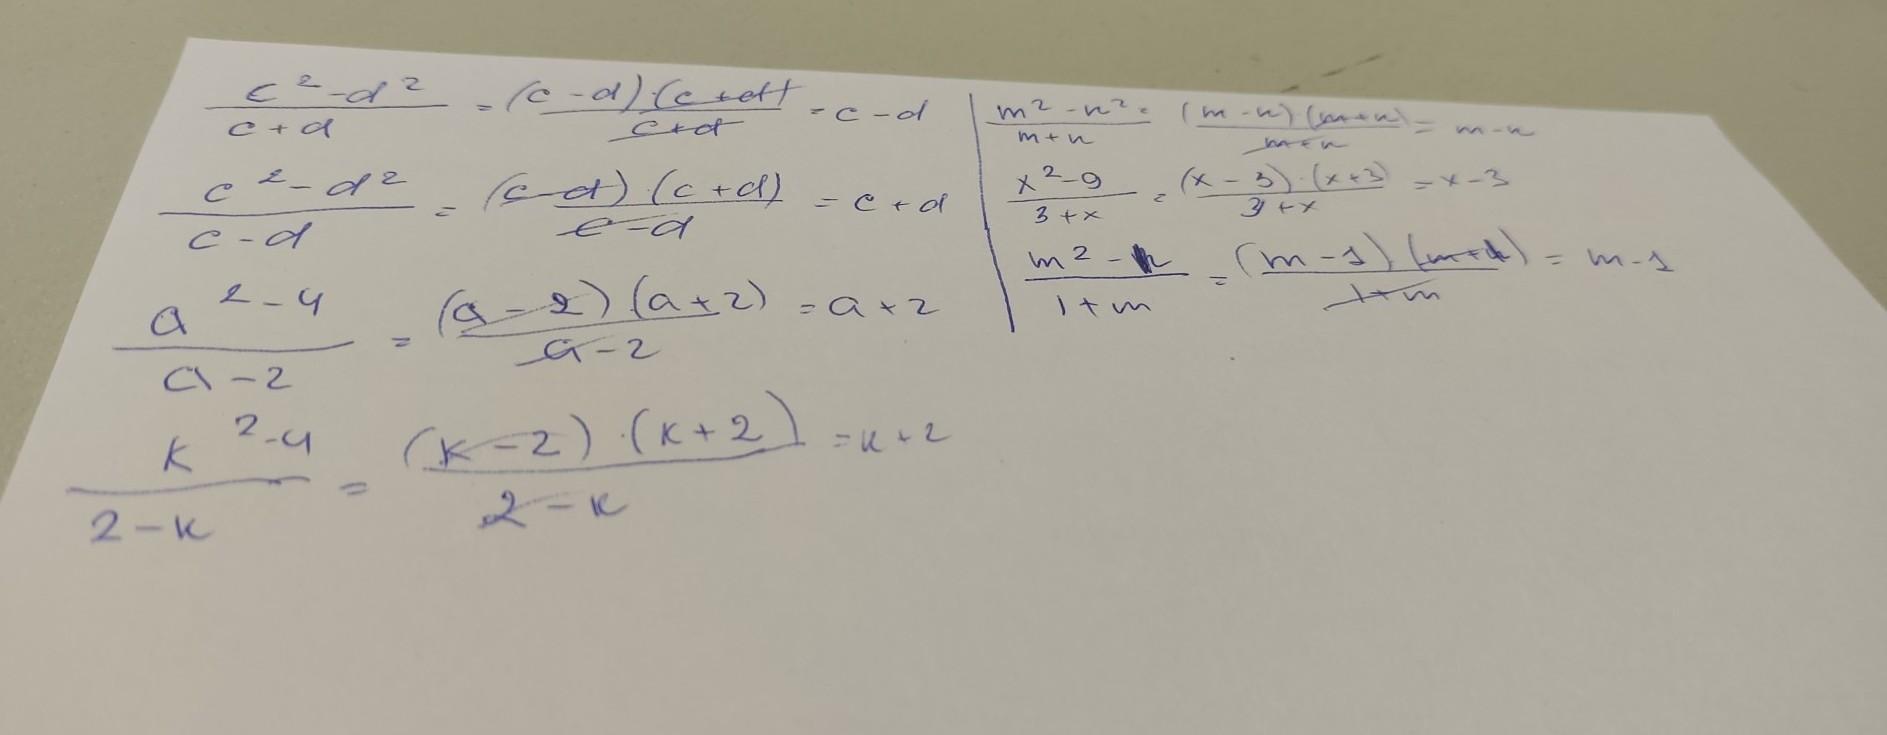 (c² - d²)/(c + d) = (c - d)·(c + d)/(c + d) = c - d
(c² - d²)/(c - d) = (c - d)·(c + d)/(c - d) = c + d
(a² - 4)/(a - 2) = (a - 2)(a + 2)/(a - 2) = a + 2
(k² - 4)/(2 - k) = (k - 2)·(k + 2)/(2 - k) = k + 2
(m² - n²)/(m + n) = (m - n)(m + n)/(m + n) = m - n
(x² - 9)/(3 + x) = (x - 3)·(x + 3)/(3 + x) = x - 3
(m² - )/(1 + m) = (m - 1)(m + 1)/(1 + m) = m - 1